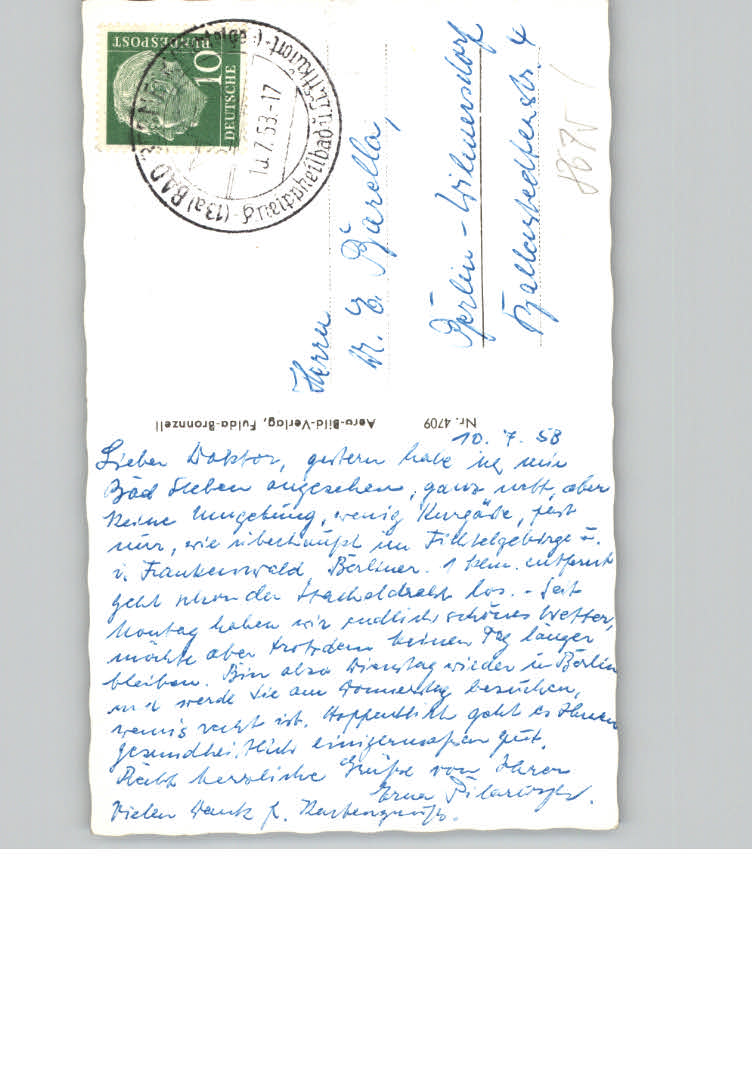 DEUTSCHE
BUNDESPOST
10
(13a) BAD
Kneippheilbad u. Luftkurort
10.7.58-17
Herrn
Dr. E. Barella,
Berlin-Wilmersdorf
Ballenstedterstr. 4
8675
Nr. 4709
Aero-Bild-Verlag, Fulda-Bronnzell
10. 7. 58
Lieber Doktor, gestern habe ich mir
Bad Steben angesehen, ganz nett, aber
keine Umgebung, wenig Kurgäste, fast
nur, wie überhaupt im Fichtelgebirge u.
i. Frankenwald Berliner. 1 klm. entfernt
geht schon der Stacheldraht los. - Seit
Montag haben wir endlich schönes Wetter,
möchte aber trotzdem keinen Tag länger
bleiben. Bin also Dienstag wieder in Berlin
und werde Sie am Donnerstag besuchen,
wenn's recht ist. Hoffentlich geht es Ihnen
gesundheitlich einigermaßen gut.
Recht herzliche Grüße von Ihrer
Erna
Vielen Dank f. Kartengruß.